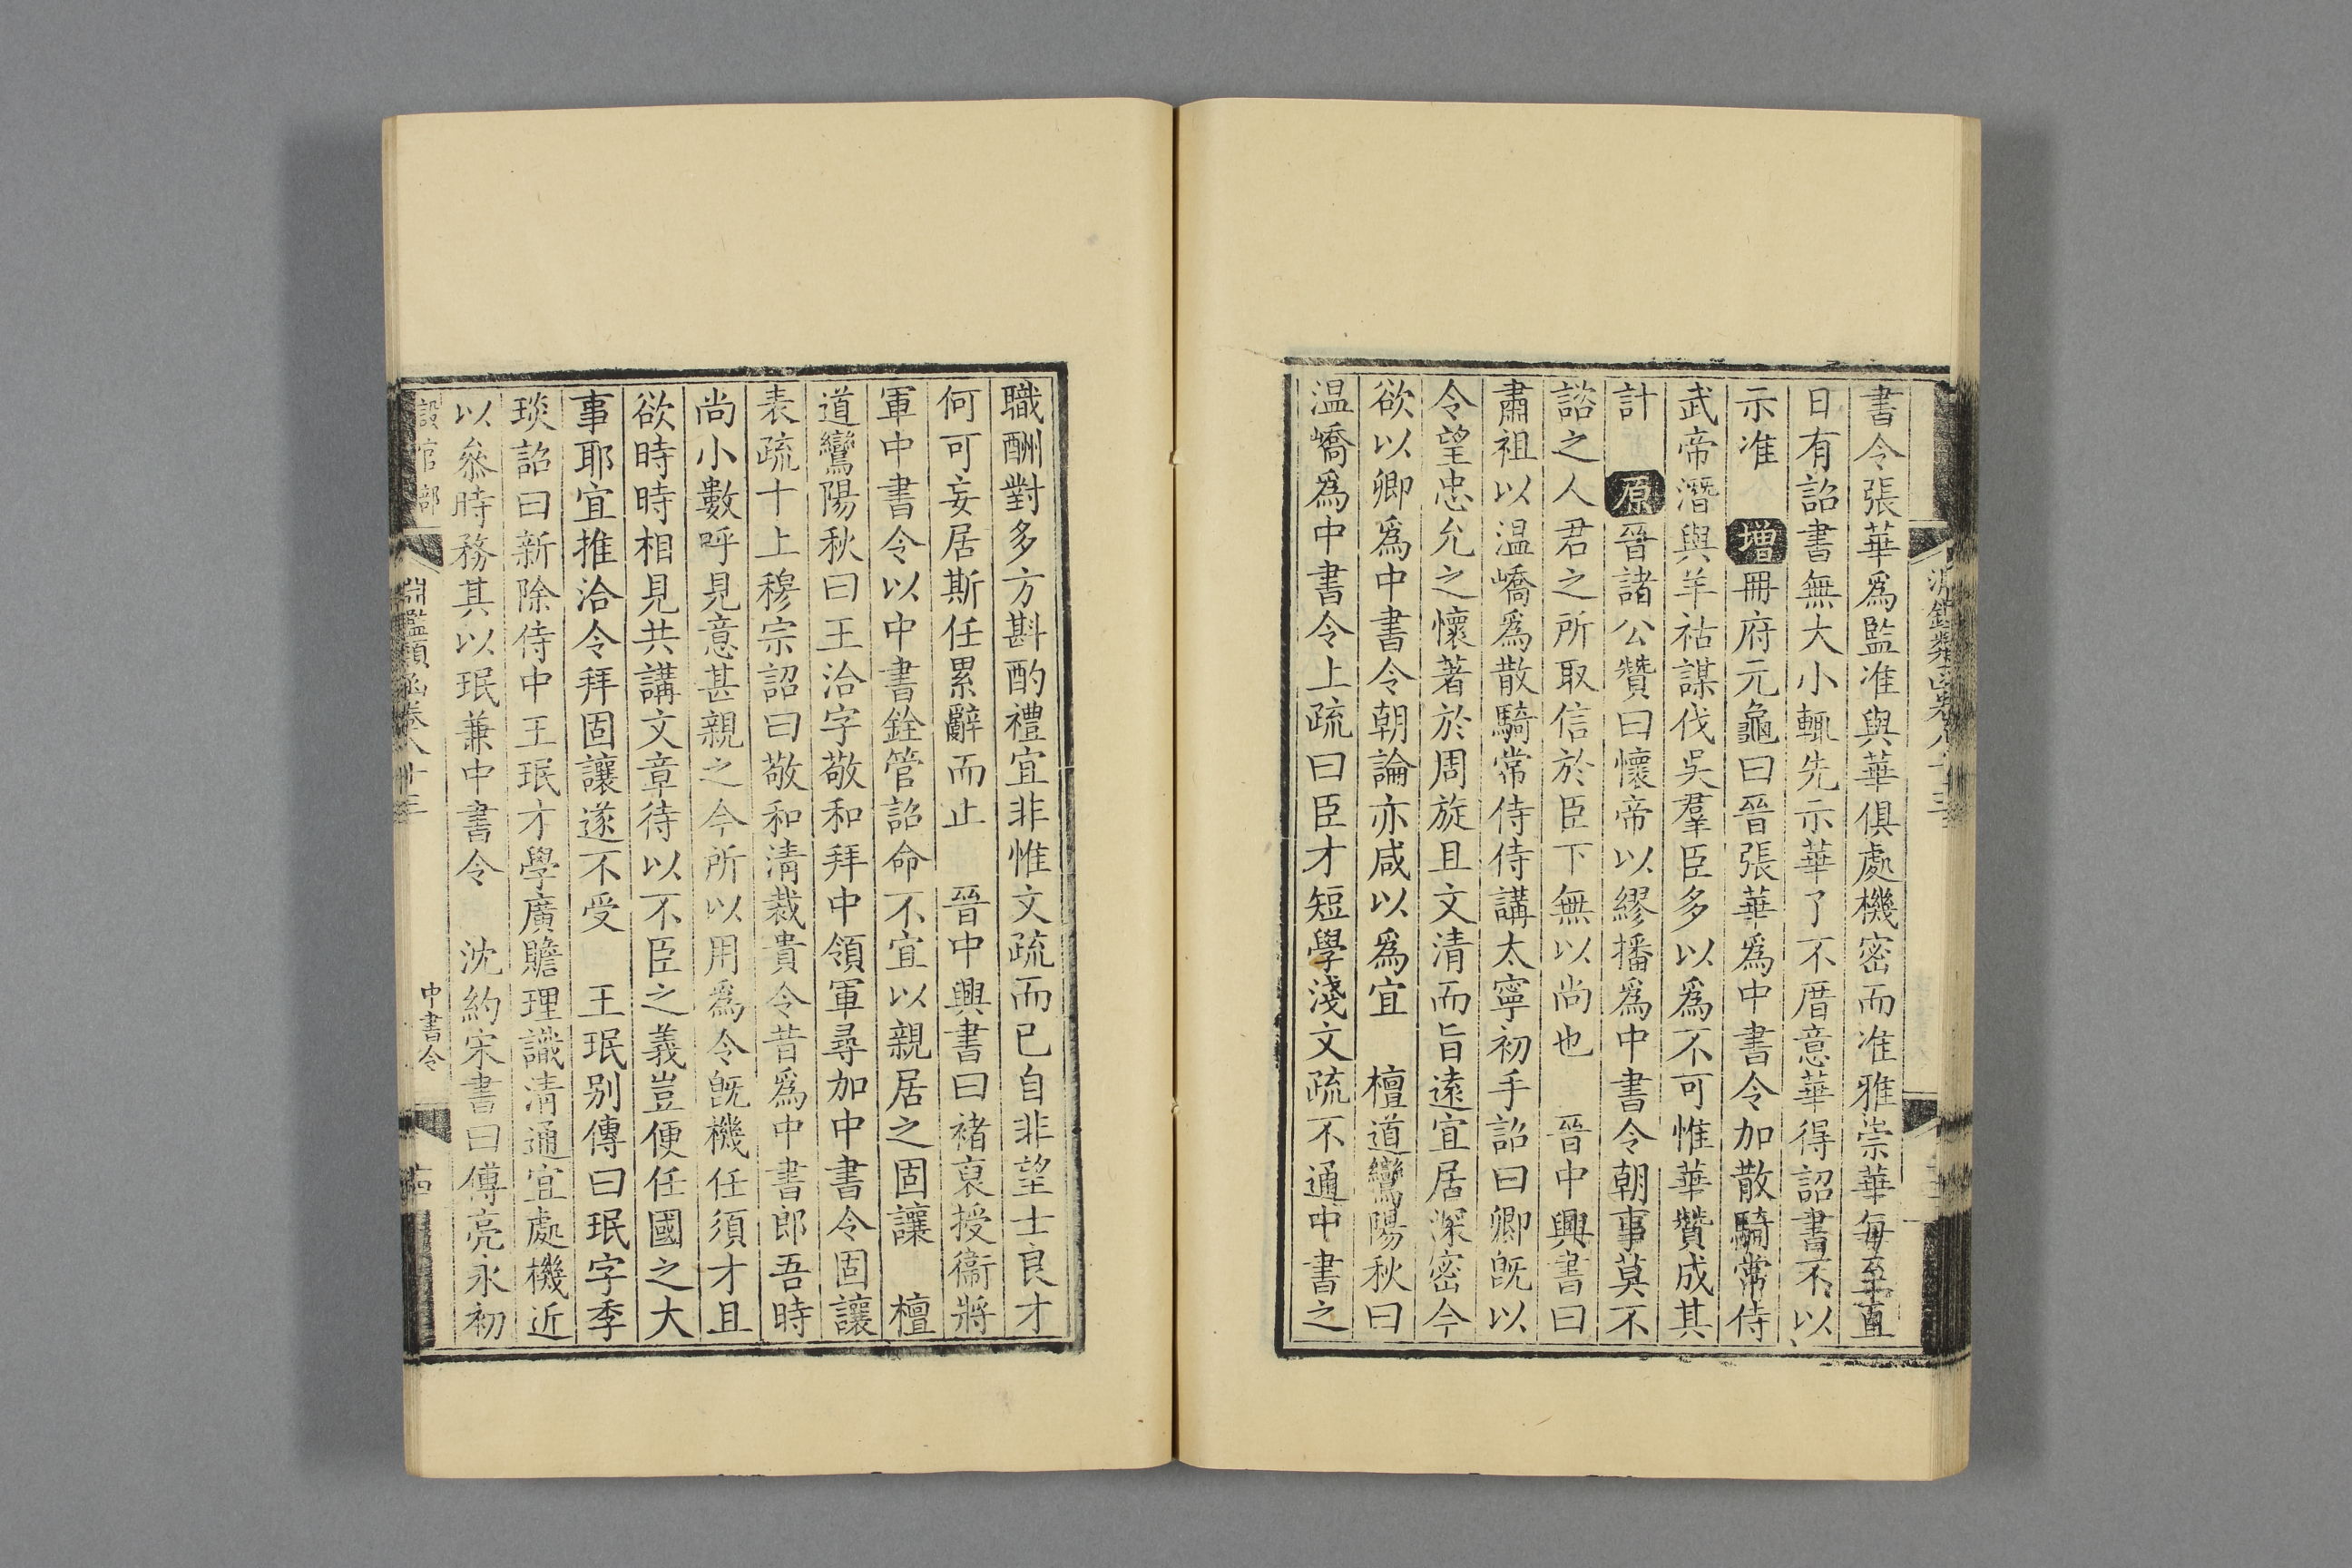 書令張華爲監准與華俱處機密而准雅崇華每至直
日有詔書無大小輒先示華了不厝意華得詔書不以
示准 增冊府元龜曰晉張華爲中書令加散騎常侍
武帝潛與羊祜謀伐吳羣臣多以爲不可惟華贊成其
計 原晉諸公贊曰懷帝以繆播爲中書令朝事莫不
諮之人君之所取信於臣下無以尚也 晉中興書曰
肅祖以温嶠爲散騎常侍侍講太寧初手詔曰卿旣以
令望忠允之懷著於周旋且文清而旨遠宜居深密今
欲以卿爲中書令朝論亦咸以爲宜 檀道鸞陽秋曰
温嶠爲中書令上疏曰臣才短學淺文疏不通中書之
職酬對多方斟酌禮宜非惟文疏而已自非望士良才
何可妄居斯任累辭而止 晉中興書曰褚裒授衞將
軍中書令以中書銓管詔命不宜以親居之固讓 檀
道鸞陽秋曰王洽字敬和拜中領軍尋加中書令固讓
表疏十上穆宗詔曰敬和清裁貴令昔爲中書郎吾時
尚小數呼見意甚親之今所以用爲令旣機任須才且
欲時時相見共講文章待以不臣之義豈便任國之大
事耶宜推洽令拜固讓遂不受 王珉别傳曰珉字季
琰詔曰新除侍中王珉才學廣贍理識清通宜處機近
以叅時務其以珉兼中書令 沈約宋書曰傅亮永初
設官部 淵鑑類函卷八十三 中書令